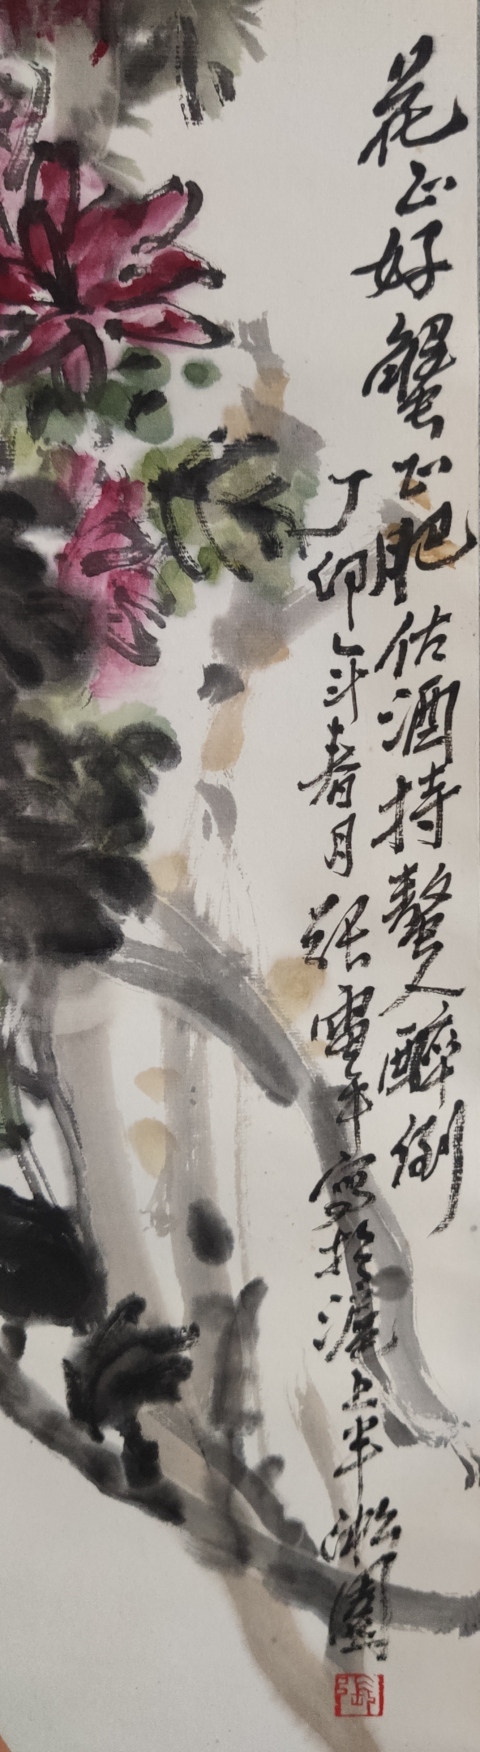 花正好蟹正肥估酒持螯人醉倒
丁卯年春月张雷平写於沪上半淞園
張